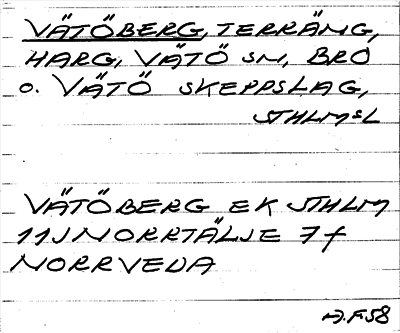 VÄTÖBERG, TERRÄNG,
HARG, VÄTÖ SN, BRO
o. VÄTÖ SKEPPSLAG,
STHLMSL
VÄTÖBERG EK STHLM
11J NORRTÄLJE 7f
NORRVEDA
A.F.58